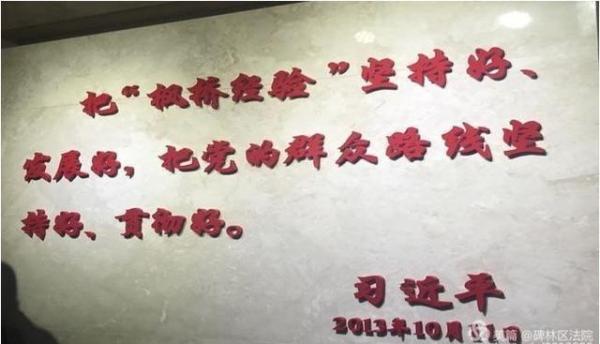 把“枫桥经验”坚持好、
发展好，把党的群众路线坚
持好、贯彻好。
习近平
2013年10月
美篇 @碑林区法院